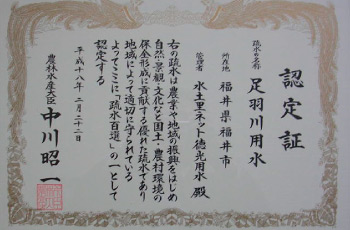 認定証
疏水の名称
足羽川用水
所在地 福井県福井市
管理者 水土里ネット徳光用水 殿
右の疏水は農業や地域の振興をはじめ
自然・景観・文化など国土・農村環境の
保全形成に貢献する優れた疏水であり
地域によって適切に守られている
よってここに「疏水百選」の一として
認定する
平成十八年二月二十二日
農林水産大臣 中川昭一